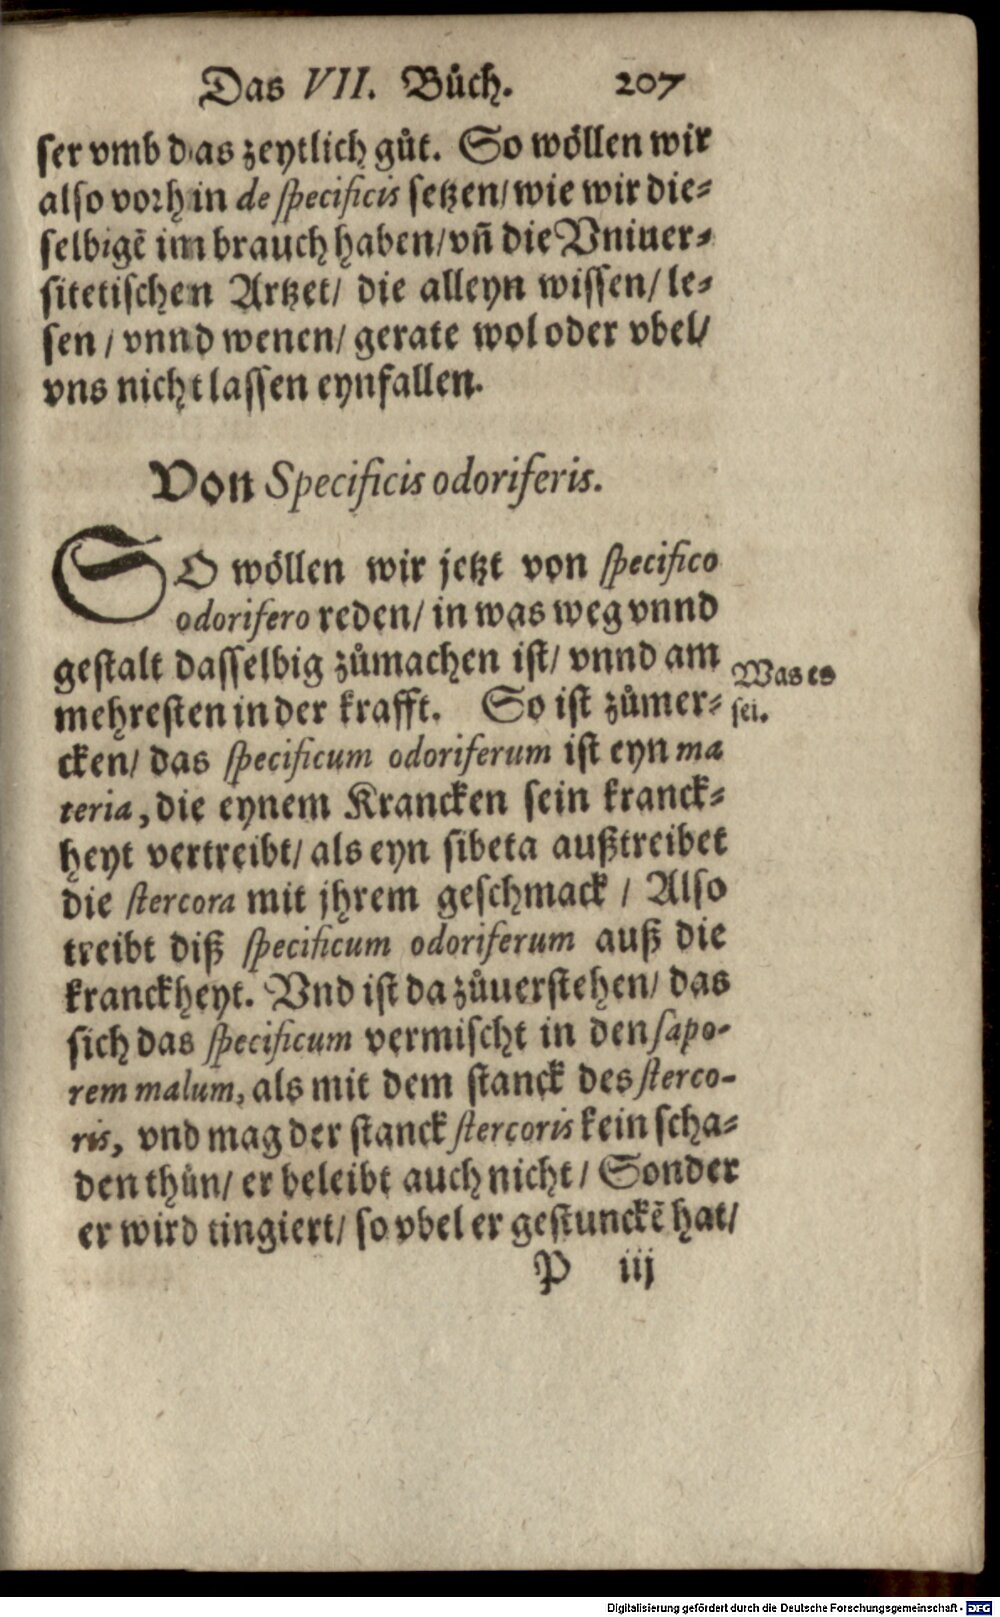 Das VII. Bůch. 207
ser vmb das zeytlich gůt. So wöllen wir
also vorhin de specificis setzen/ wie wir die-
selbigē im brauch haben/ vñ die Vniuer-
sitetischen Artzet/ die alleyn wissen/ le-
sen / vnnd wenen/ gerate wol oder vbel/
vns nicht lassen eynfallen.
Von Specificis odoriferis.
SO wöllen wir jetzt von specifico
odorifero reden/ in was weg vnnd
gestalt dasselbig zůmachen ist/ vnnd am
mehresten in der krafft. So ist zůmer-
cken/ das specificum odoriferum ist eyn ma
teria, die eynem Krancken sein kranck-
heyt vertreibt/ als eyn sibeta außtreibet
die stercora mit jhrem geschmack / Also
treibt diß specificum odoriferum auß die
kranckheyt. Vnd ist da zůuerstehen/ das
sich das specificum vermischt in den sapo-
rem malum, als mit dem stanck des sterco-
ris, vnd mag der stanck stercoris kein scha-
den thůn/ er beleibt auch nicht / Sonder
er wird tingiert/ so vbel er gestunckē hat/
P iij
Was es
sei.
Digitalisierung gefördert durch die Deutsche Forschungsgemeinschaft - DFG